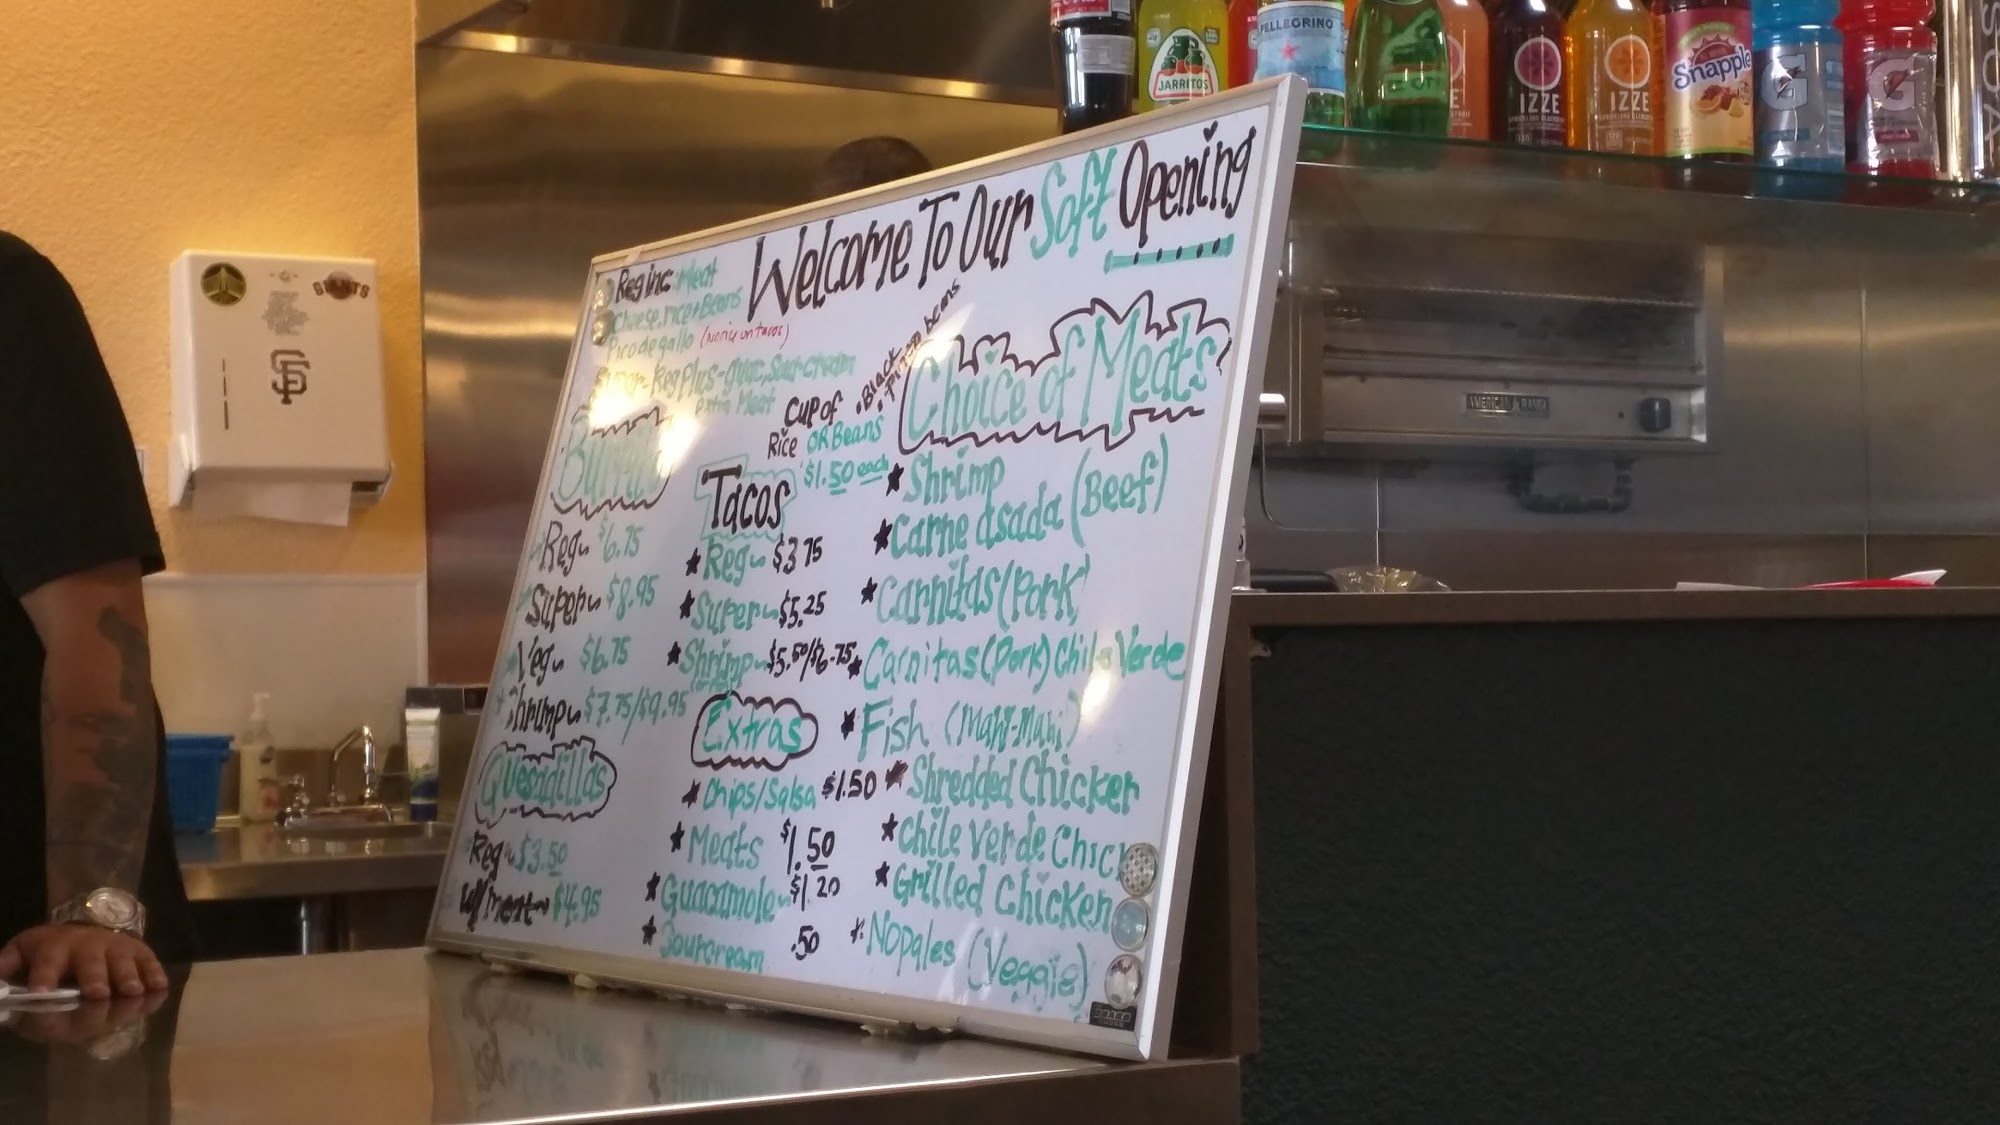 Welcome To Our Soft Opening
Reg inc: Meat
Cheese, rice + Beans
Pico de gallo (no rice on tacos)
Super - Reg Plus - guac, Sour cream
extra Meat
Cup of
Rice OR Beans
$1.50 each
. Black
. Pinto beans
Burritos
Reg ~ $6.75
Super ~ $8.95
Veg ~ $6.75
Shrimp ~ $7.75/$9.95
Quesadillas
Reg ~ $3.50
w/ meat ~ $4.95
Tacos
★ Reg ~ $3.75
★ Super ~ $5.25
★ Shrimp ~ $5.50/$6.75
Extras
★ Chips/Salsa $1.50
★ Meats $1.50
★ Guacamole ~ $1.20
★ Sourcream .50
Choice of Meats
★ Shrimp
★ Carne asada (Beef)
★ Carnitas (Pork)
★ Carnitas (Pork) Chile Verde
★ Fish (Mahi-Mahi)
★ Shredded Chicken
★ Chile Verde Chick
★ Grilled Chicken
★ Nopales (Veggie)
JARRITOS
PELLEGRINO
IZZE
IZZE
Snapple
G
G
GIANTS
SF
AMERICAN RANGE